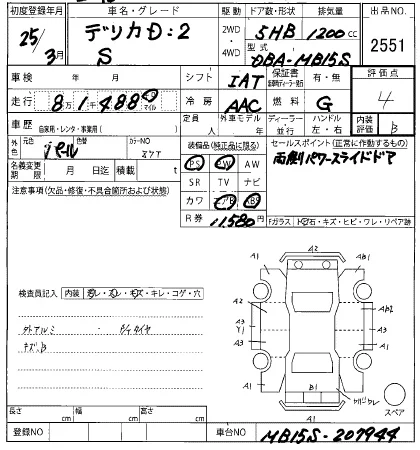 初度登録年月 車名・グレード 駆動 ドア数・形状 排気量 出品NO
25/3月 デリカD:2 S 2WD 4WD 5HB 1200cc 2551
型式 DBA-MB15S
車検 年 月 シフト IAT 保証書 有・無 評価点
走行 8万1千488 キロ マイル 冷房 AAC 燃料 G 4
車歴 自家用・レンタ・事業用( ) 定員 人 外車モデル 年 ディーラー・並行 ハンドル 左・右 内装評価 B
外色 元色 パール 色替 カラーNO 装備品(純正品に限る) セールスポイント(正常に作動するもの)
PS PW AW 両側パワースライドドア
名義変更期限 月 日 積載 t SR TV ナビ
注意事項(欠品・修復・不具合箇所および状態) カワ エアB ABS
R券 11,580円 Fガラス トビ石・キズ・ヒビ・ワレ・リペア跡
A2
A1 AB1
検査員記入 内装 コゲ・穴
A2 AB2
A3 Y1 A3
外アルミ
A3 A1
キズB
B1
A1 A1
スペア
長さ cm 幅 cm 高さ cm
登録NO 車台NO MB15S-207944